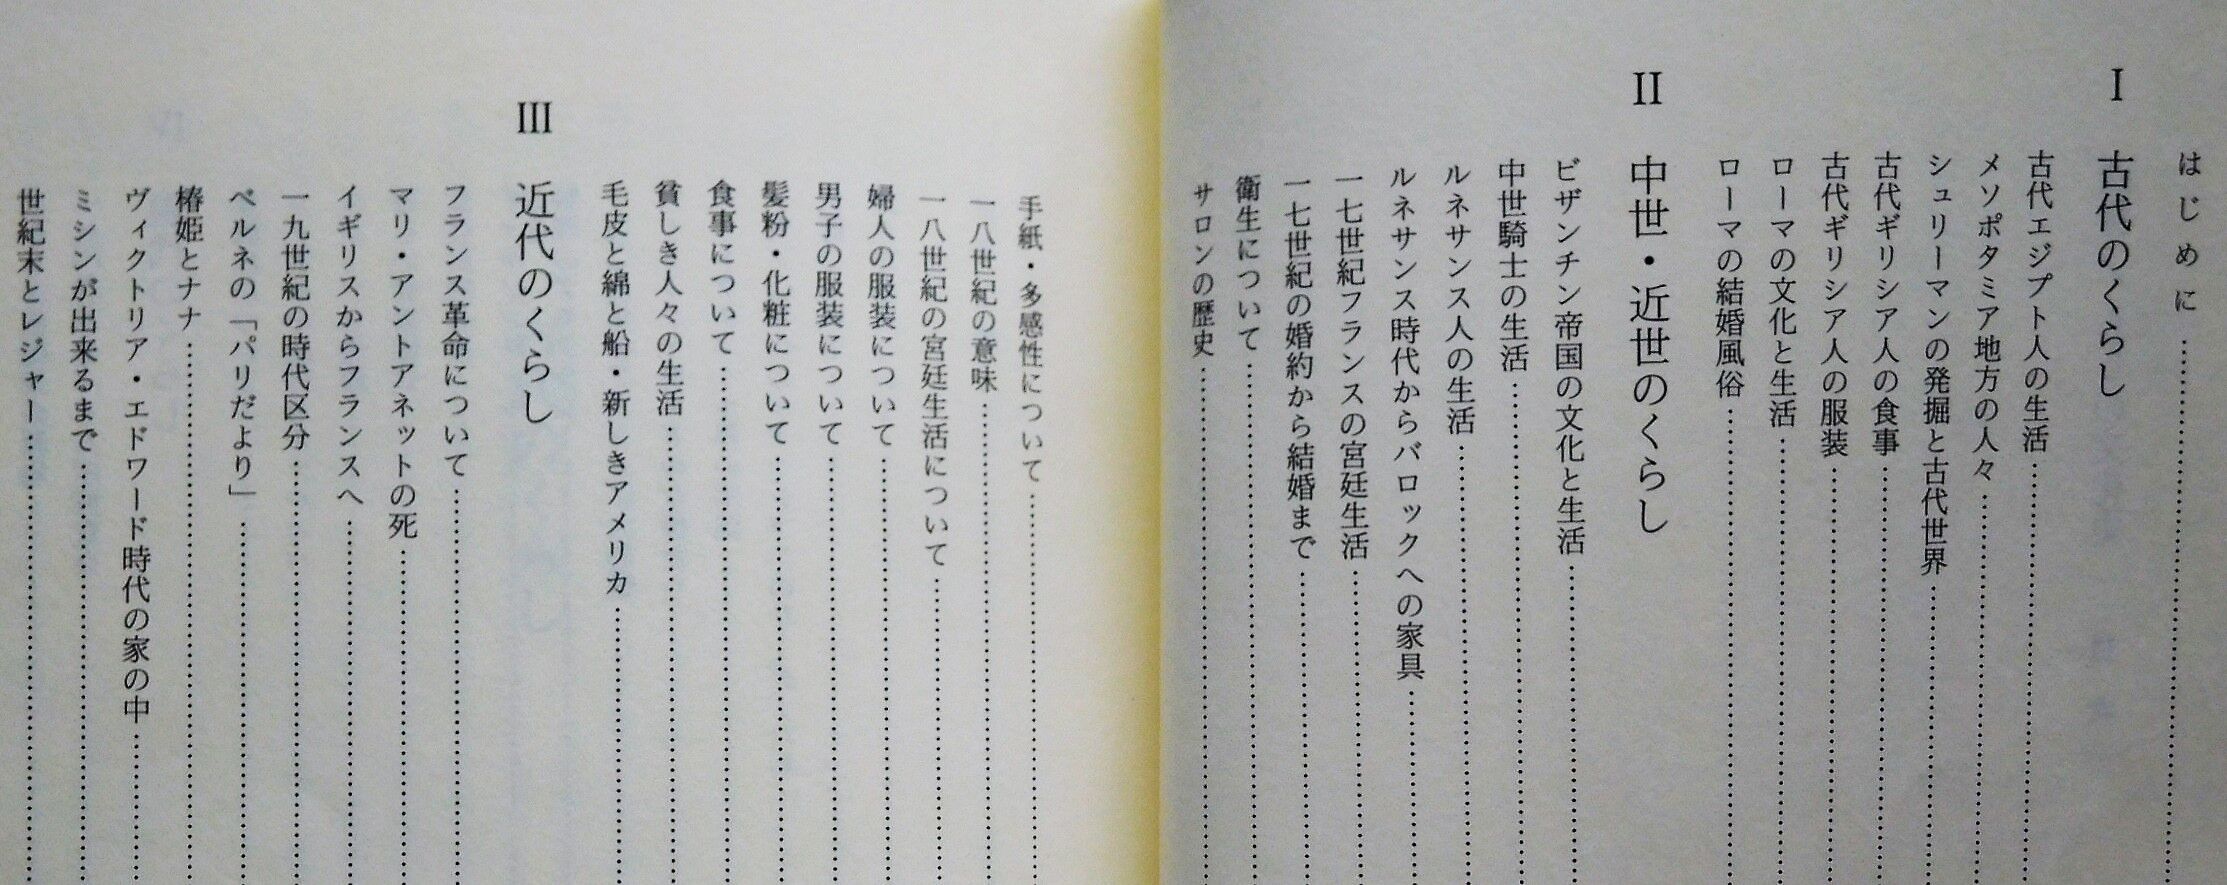 はじめに
I 古代のくらし
古代エジプト人の生活
メソポタミア地方の人々
シュリーマンの発掘と古代世界
古代ギリシア人の食事
古代ギリシア人の服装
ローマの文化と生活
ローマの結婚風俗
II 中世・近世のくらし
ビザンチン帝国の文化と生活
中世騎士の生活
ルネサンス人の生活
ルネサンス時代からバロックへの家具
一七世紀フランスの宮廷生活
一七世紀の婚約から結婚まで
衛生について
サロンの歴史
手紙・多感性について
一八世紀の意味
一八世紀の宮廷生活について
婦人の服装について
男子の服装について
髪粉・化粧について
食事について
貧しき人々の生活
毛皮と綿と船・新しきアメリカ
III 近代のくらし
フランス革命について
マリ・アントアネットの死
イギリスからフランスへ
一九世紀の時代区分
ベルネの「パリだより」
椿姫とナナ
ヴィクトリア・エドワード時代の家の中
ミシンが出来るまで
世紀末とレジャー